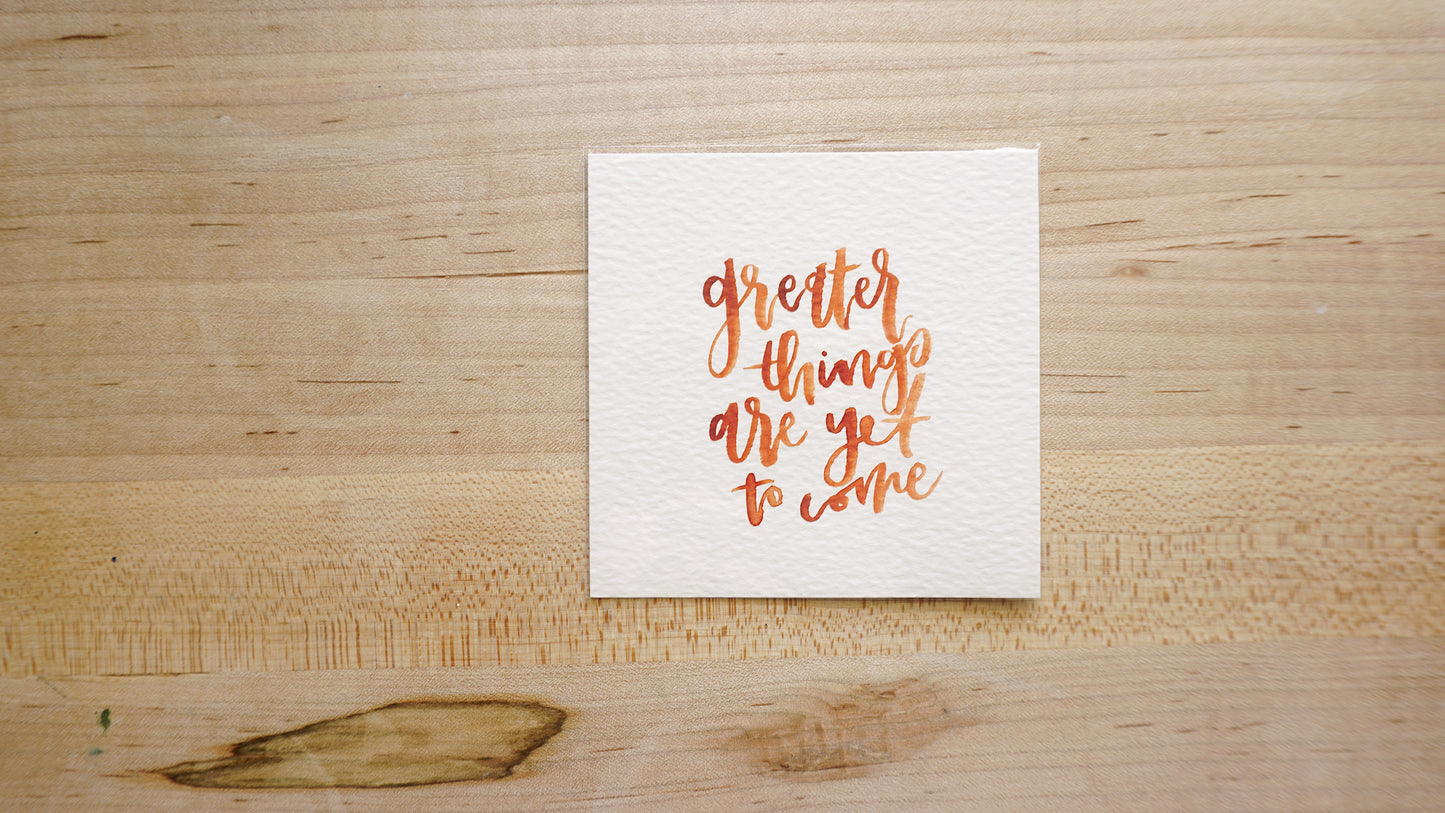 greater
things
are yet
to come